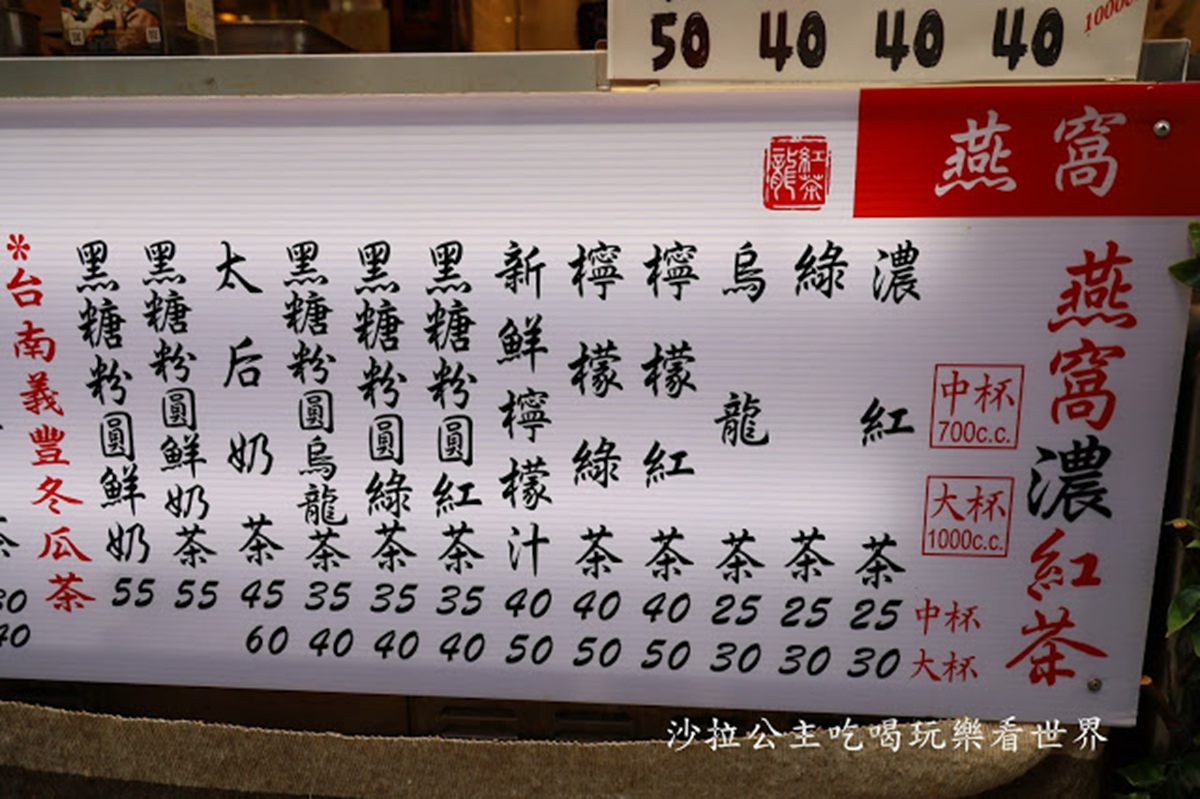 50 40 40 40
1000c
燕窩
紅茶龍
燕窩濃紅茶
中杯
700c.c.
大杯
1000c.c.
濃紅茶 25 30
綠茶 25 30
烏龍茶 25 30
檸檬紅茶 40 50
檸檬綠茶 40 50
新鮮檸檬汁 40 50
黑糖粉圓紅茶 35 40
黑糖粉圓綠茶 35 40
黑糖粉圓烏龍茶 35 40
太后奶茶 45 60
黑糖粉圓鮮奶茶 55
黑糖粉圓鮮奶 55
*台南義豐冬瓜茶
茶 30 40
中杯
大杯
沙拉公主吃喝玩樂看世界